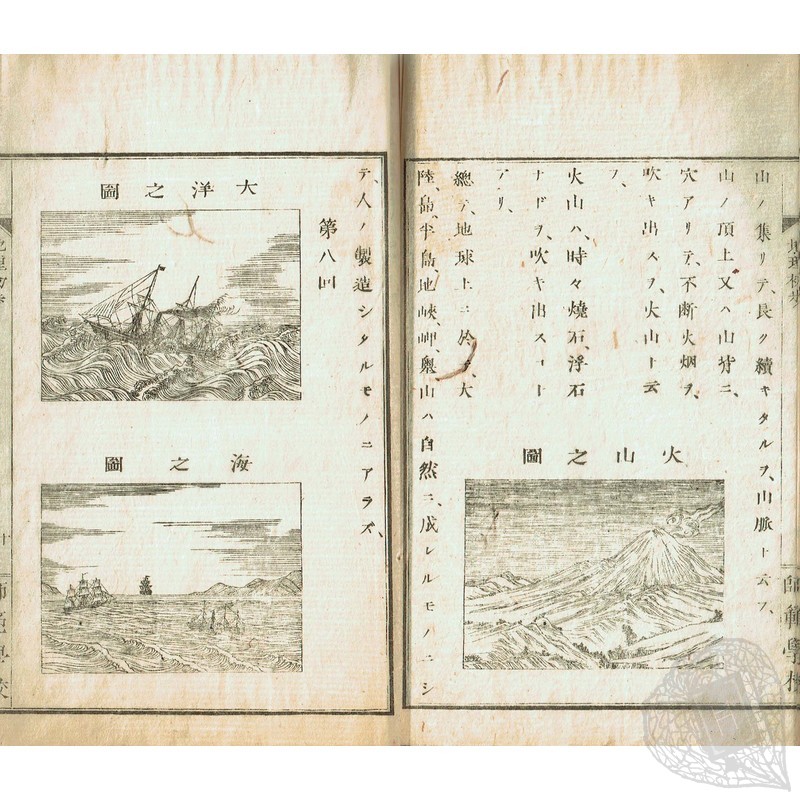 山ノ集リテ、長ク續キタルヲ、山脈ト云フ、
山ノ頂上又ハ山
穴アリテ、不断火烟ヲ、
吹キ出スヲ、火山ト云
フ、
火山ハ、時々燒石、浮石
ナドヲ、吹キ出スコト
アリ、
火山之圖
總テ、地球上ニ於テ、大
陸、島、半島、地峽、岬、與山ハ自然ニ、成レルモノニシ
師範學校
テ、人ノ製造シタルモノニアラズ、
第八回
大洋之圖
海之圖